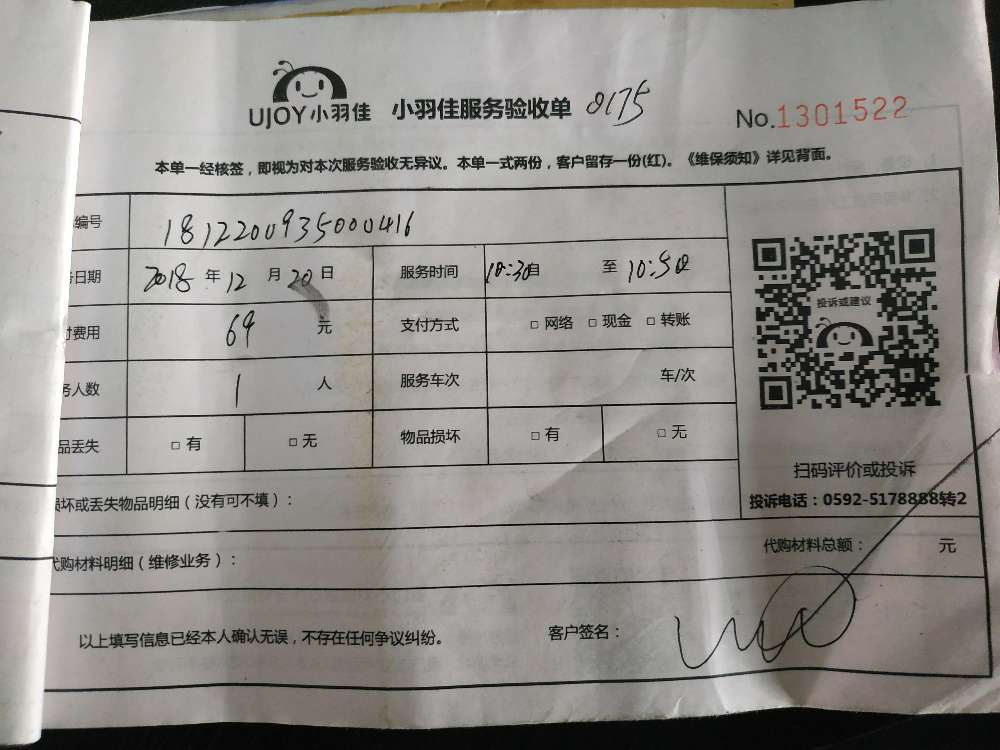 UJOY小羽佳 小羽佳服务验收单 0175 No.1301522
本单一经核签，即视为对本次服务验收无异议。本单一式两份，客户留存一份(红)。《维保须知》详见背面。
编号 1812200935000416
日期 2018 年 12 月 20 日 服务时间 10:30自 至 10:50
付费用 69 元 支付方式 □ 网络 □ 现金 □ 转账
务人数 1 人 服务车次 车/次
品丢失 □ 有 □ 无 物品损坏 □ 有 □ 无
投诉或建议
扫码评价或投诉
投诉电话：0592-5178888转2
损坏或丢失物品明细（没有可不填）：
代购材料明细（维修业务）： 代购材料总额： 元
以上填写信息已经本人确认无误，不存在任何争议纠纷。 客户签名：